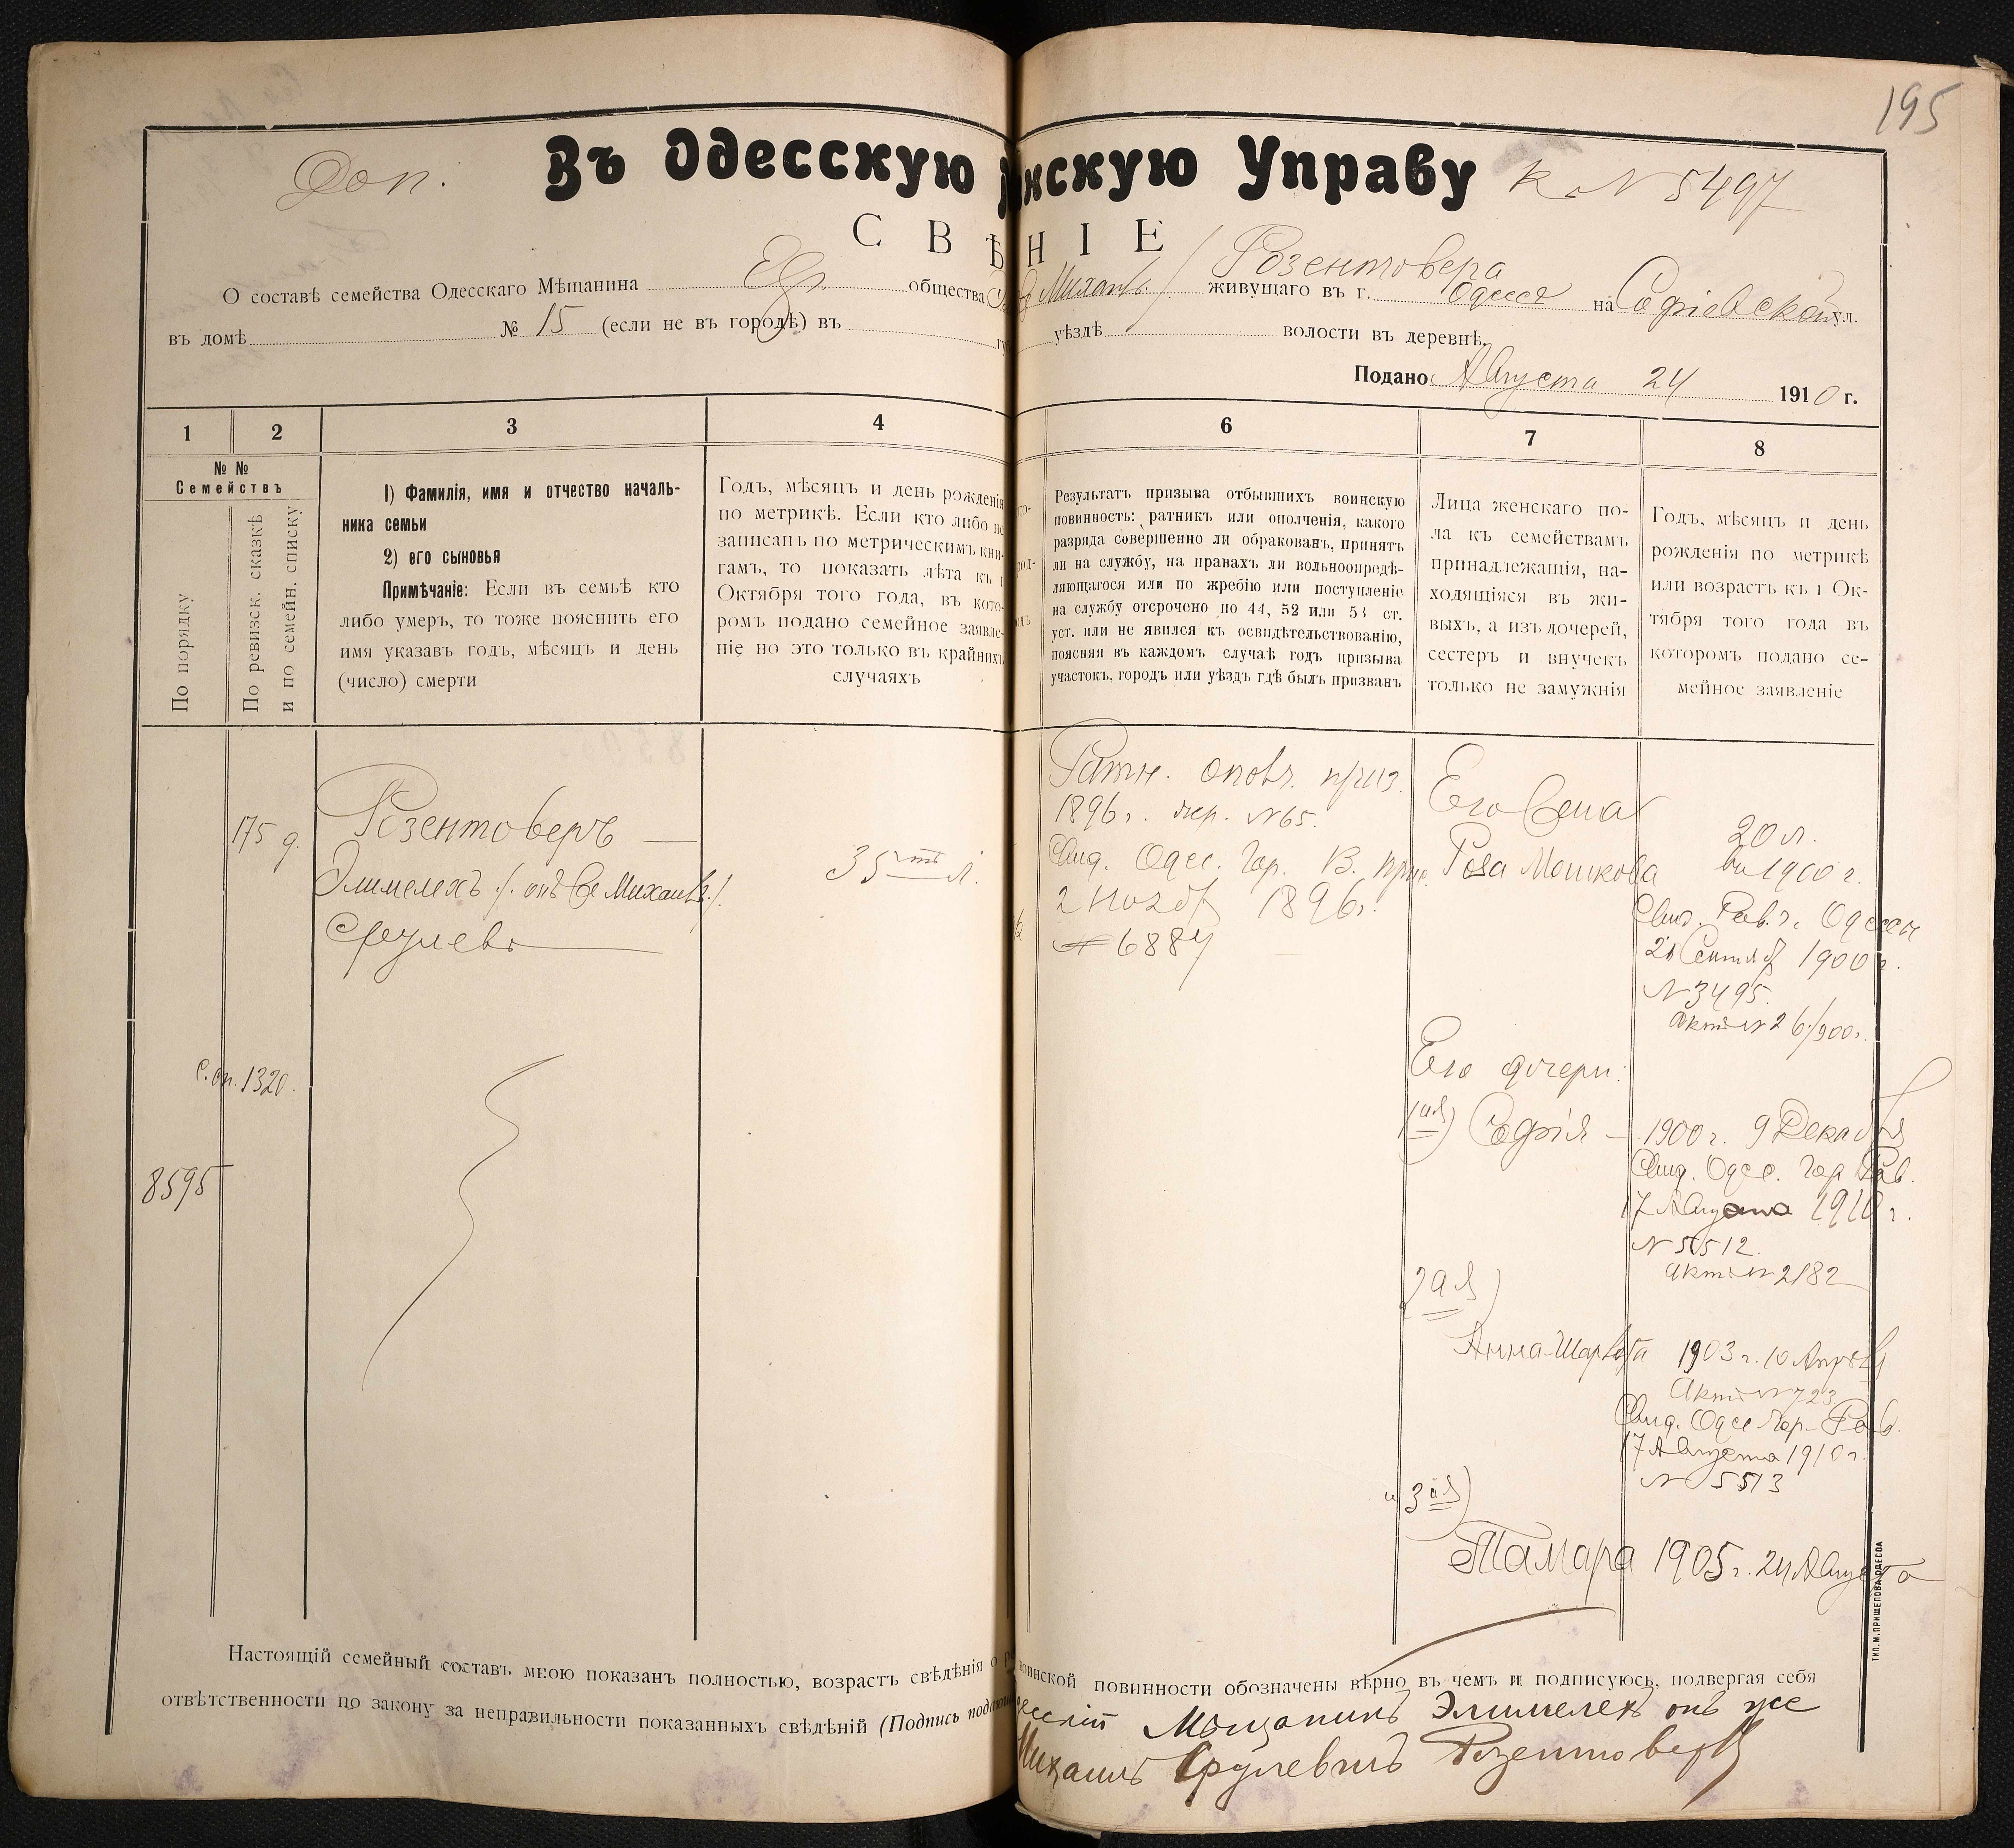 195
Доп.
Въ Одесскую нскую Управу
К. N 5497
СВѢ НІЕ
Розентовера
О составѣ семейства Одесскаго Мѣщанина Евр. общества Михаилъ / живущаго въ г. Одесса на Софіевской ул.
въ домѣ № 15 (если не въ городѣ) въ уѣздѣ волости въ деревнѣ
Подано Августа 24 1910 г.
1
2
3
4
6
7
8
№ №
Семействъ
По порядку
По ревизск. сказкѣ
и по семейн. списку
1) Фамилія, имя и отчество началь-
ника семьи
2) его сыновья
Примѣчаніе: Если въ семьѣ кто
либо умеръ, то тоже пояснить его
имя указавъ годъ, мѣсяцъ и день
(число) смерти
Годъ, мѣсяцъ и день рожденія
по метрикѣ. Если кто либо не
записанъ по метрическимъ кни-
гамъ, то показать лѣта къ 1
Октября того года, въ кото-
ромъ подано семейное заявле-
ніе но это только въ крайнихъ
случаяхъ
Результатъ призыва отбывшихъ воинскую
повинность: ратникъ или ополченія, какого
разряда совершенно ли обракованъ, принятъ
ли на службу, на правахъ ли вольноопредѣ-
ляющагося или по жребію или поступленіе
на службу отсрочено по 44, 52 или 53 ст.
уст. или не явился къ освидѣтельствованію,
поясняя въ каждомъ случаѣ годъ призыва
участокъ, городъ или уѣздъ гдѣ былъ призванъ
Лица женскаго по-
ла къ семействамъ
принадлежащія, на-
ходящіяся въ жи-
выхъ, а изъ дочерей,
сестеръ и внучекъ
только не замужнія
Годъ, мѣсяцъ и день
рожденія по метрикѣ
или возрастъ къ 1 Ок-
тября того года въ
которомъ подано се-
мейное заявленіе
175 д.
Розентоверъ
Элимелехъ /. онъ же Михаилъ ./
Срулевъ
35 ть л.
Ратн. ополч. приз.
1896 г. жер. N 65.
Свид. Одес. Гор. В. прис.
2 Нояб 1896 г.
№ 6884
Его жена
Роза Мошкова
20 л.
въ 1900 г.
Свид. Рав. г. Одессы
21 Сентяб 1900 г.
N 3495
актъ N 26/900 г.
С. оп. 1320.
8595
Его дочери:
1 ая) Софія — 1900 г. 9 Декабря
Свид. Одес. Гор Рав.
17 Августа 1910 г.
N 5512.
актъ N 2182
2 ая)
Анна-Шарлота 1903 г. 10 Апрѣля
Актъ N 723
Свид. Одес Гор. Рав.
17 Августа 1910 г.
N 5513
и 3 ая)
Тамара 1905 г. 24 Августа
Настоящій семейный составъ мною показанъ полностью, возрастъ свѣдѣнія о воинской повинности обозначены вѣрно въ чемъ и подписуюсь, подвергая себя
отвѣтственности по закону за неправильности показанныхъ свѣдѣній (Подпись Мѣщанинъ Элимелехъ онъ же
Михаилъ Срулевичъ Розентоверъ
ТИП. М. ПРИЩЕПОВА ОДЕССА